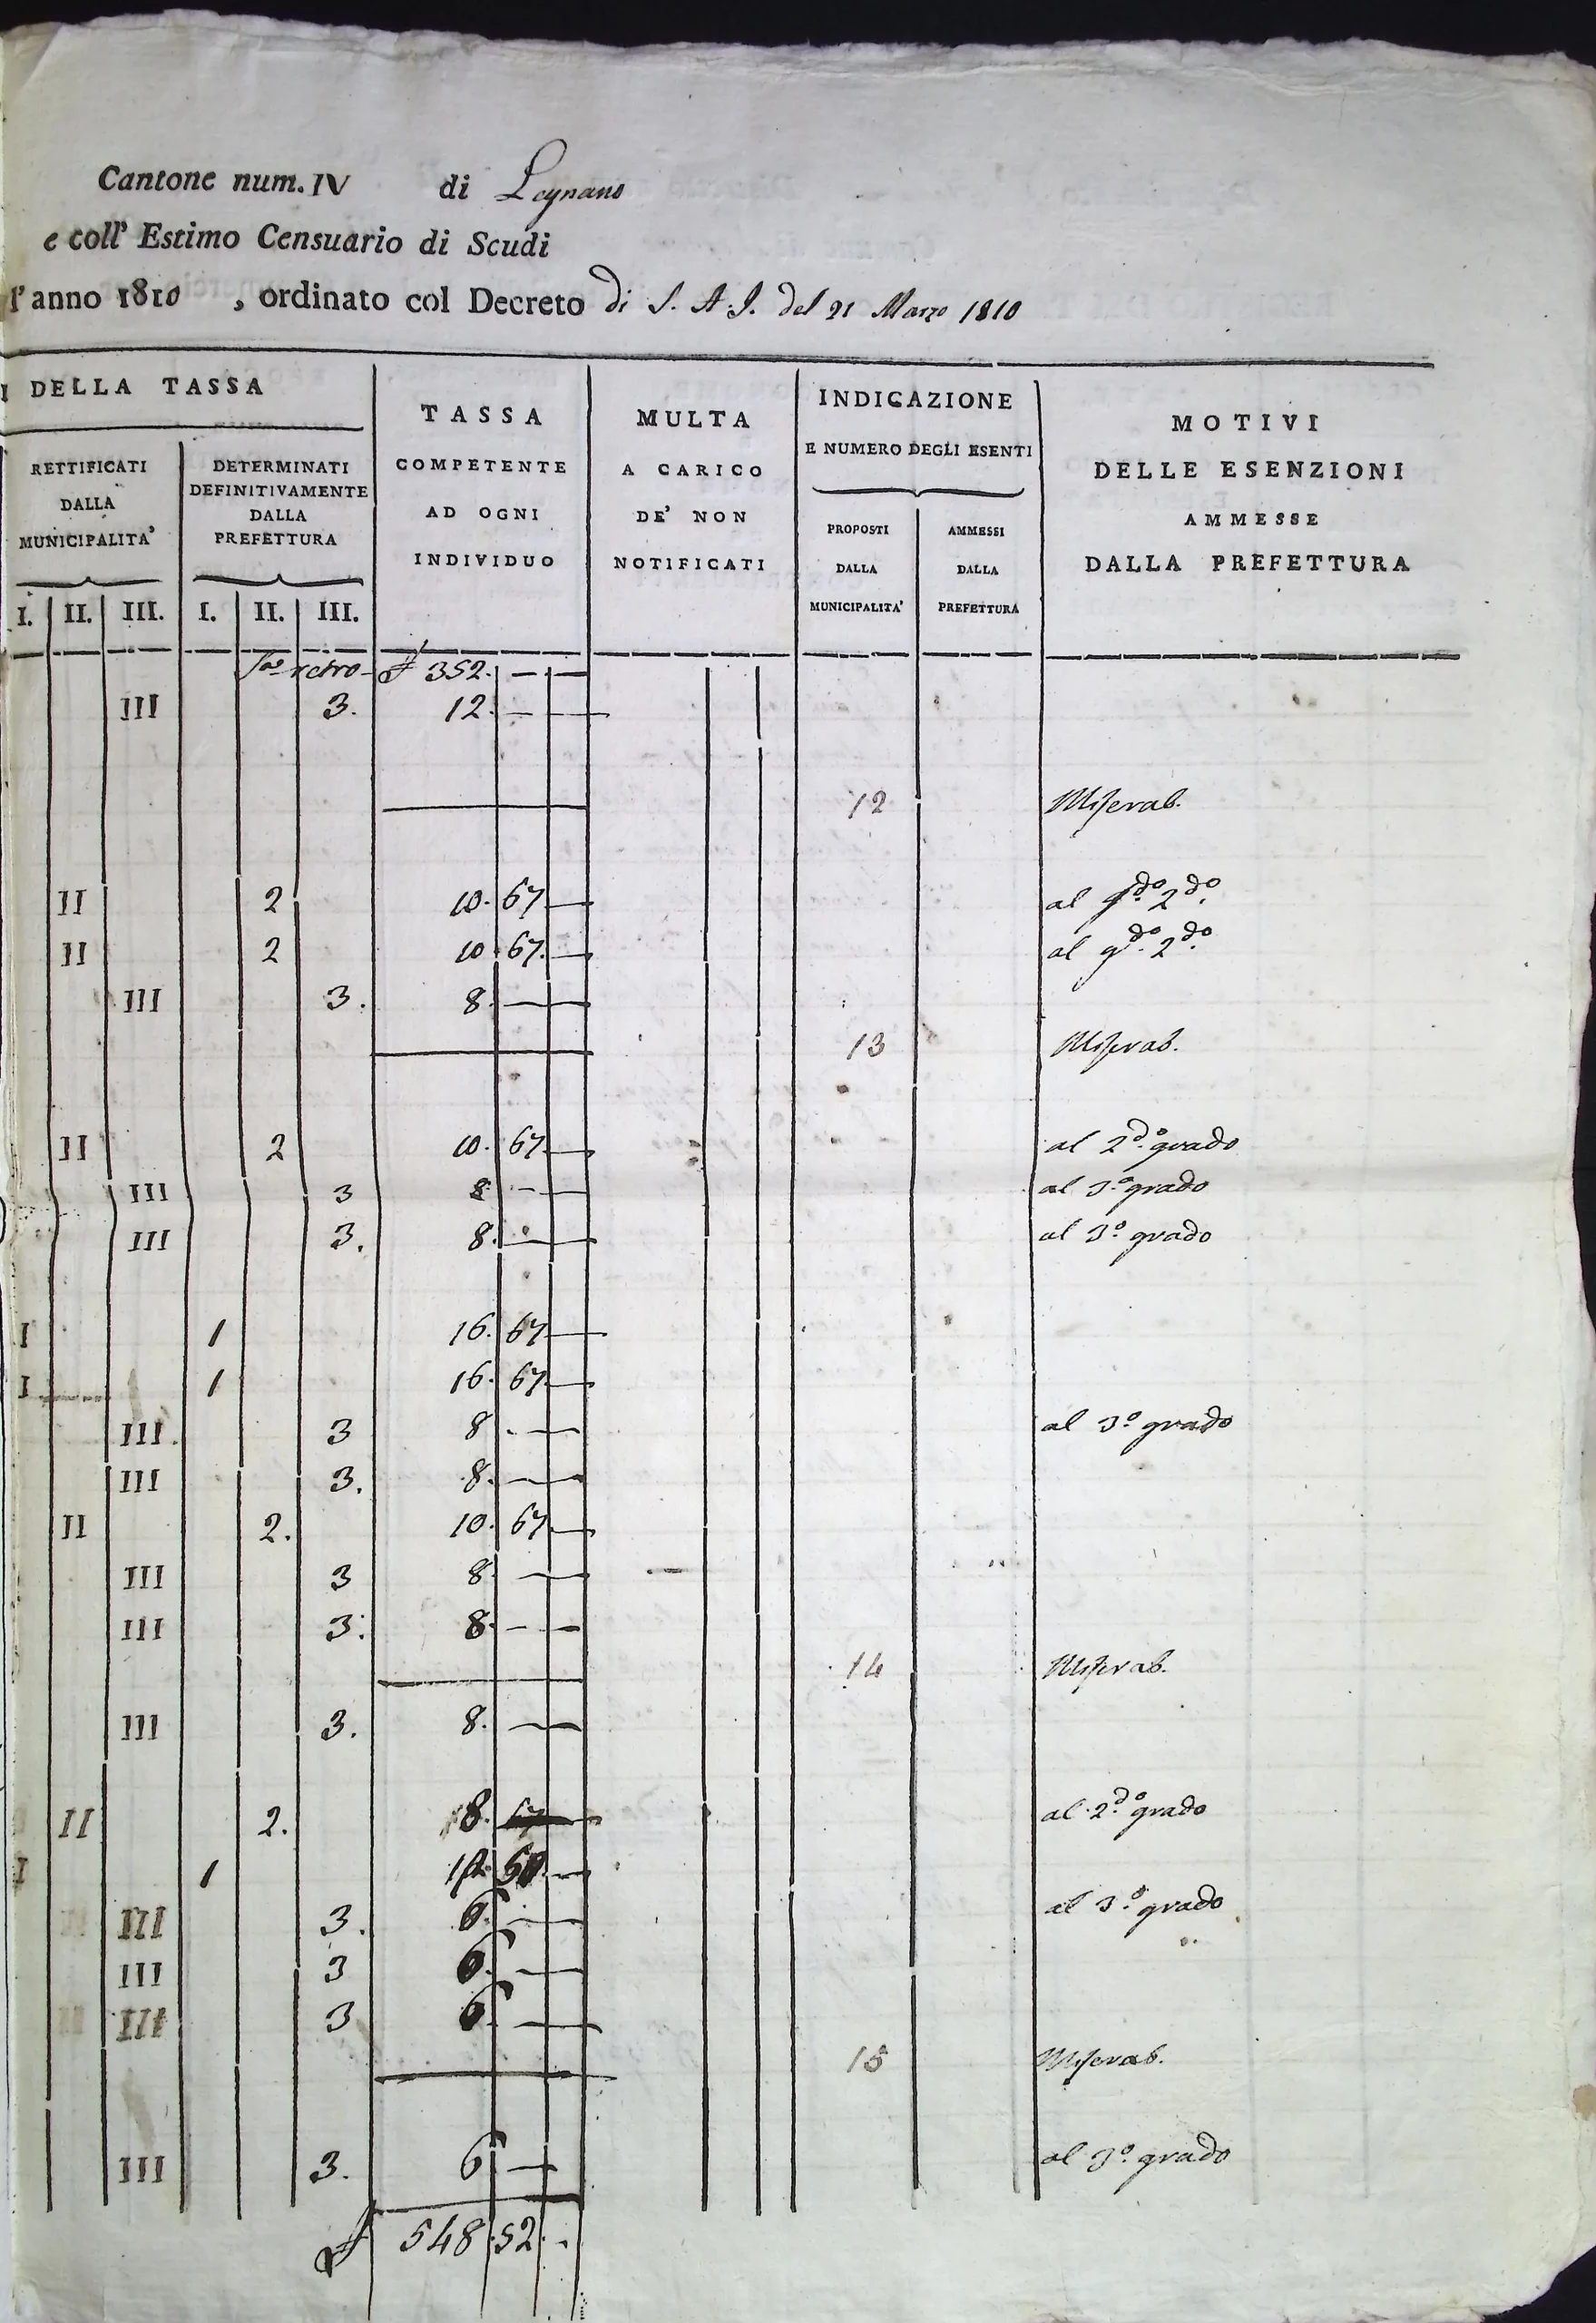 Cantone num. IV di Legnano
e coll' Estimo Censuario di Scudi
l'anno 1810 , ordinato col Decreto di S. A. I. del 21 Marzo 1810
I DELLA TASSA
RETTIFICATI DALLA MUNICIPALITA'
DETERMINATI DEFINITIVAMENTE DALLA PREFETTURA
I. II. III. I. II. III.
TASSA
COMPETENTE
AD OGNI
INDIVIDUO
MULTA
A CARICO
DE' NON
NOTIFICATI
INDICAZIONE
E NUMERO DEGLI ESENTI
PROPOSTI DALLA MUNICIPALITA'
AMMESSI DALLA PREFETTURA
MOTIVI
DELLE ESENZIONI
AMMESSE
DALLA PREFETTURA
retro 352. — —
III 3. 12. — —
12 Miserab.
II 2 10. 67 — al gdo. 2do.
II 2 10. 67. — al gdo. 2do.
III 3. 8. — —
13 Miserab.
II 2 10. 67 — al 2do. grado
III 3 8. — — al 3.o grado
III 3. 8. — — al 3.o grado
I 1 16. 67 —
I 1 16. 67 —
III. 3 8. — — al 3.o grado
III 3. 8. — —
II 2. 10. 67 —
III 3 8. — —
III 3. 8. — —
14 Miserab.
III 3. 8. — —
II 2. 8. — al 2do. grado
I 1 12. 50 —
III 3. 6. — — al 3.o grado
III 3 6. — —
III 3 6. — —
15 Miserab.
III 3. 6 — — al 3.o grado
548. 52. .